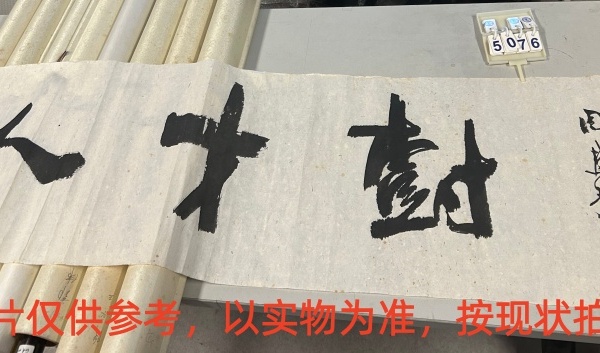 5076
樹才人
片仅供参考，以实物为准，按现状拍